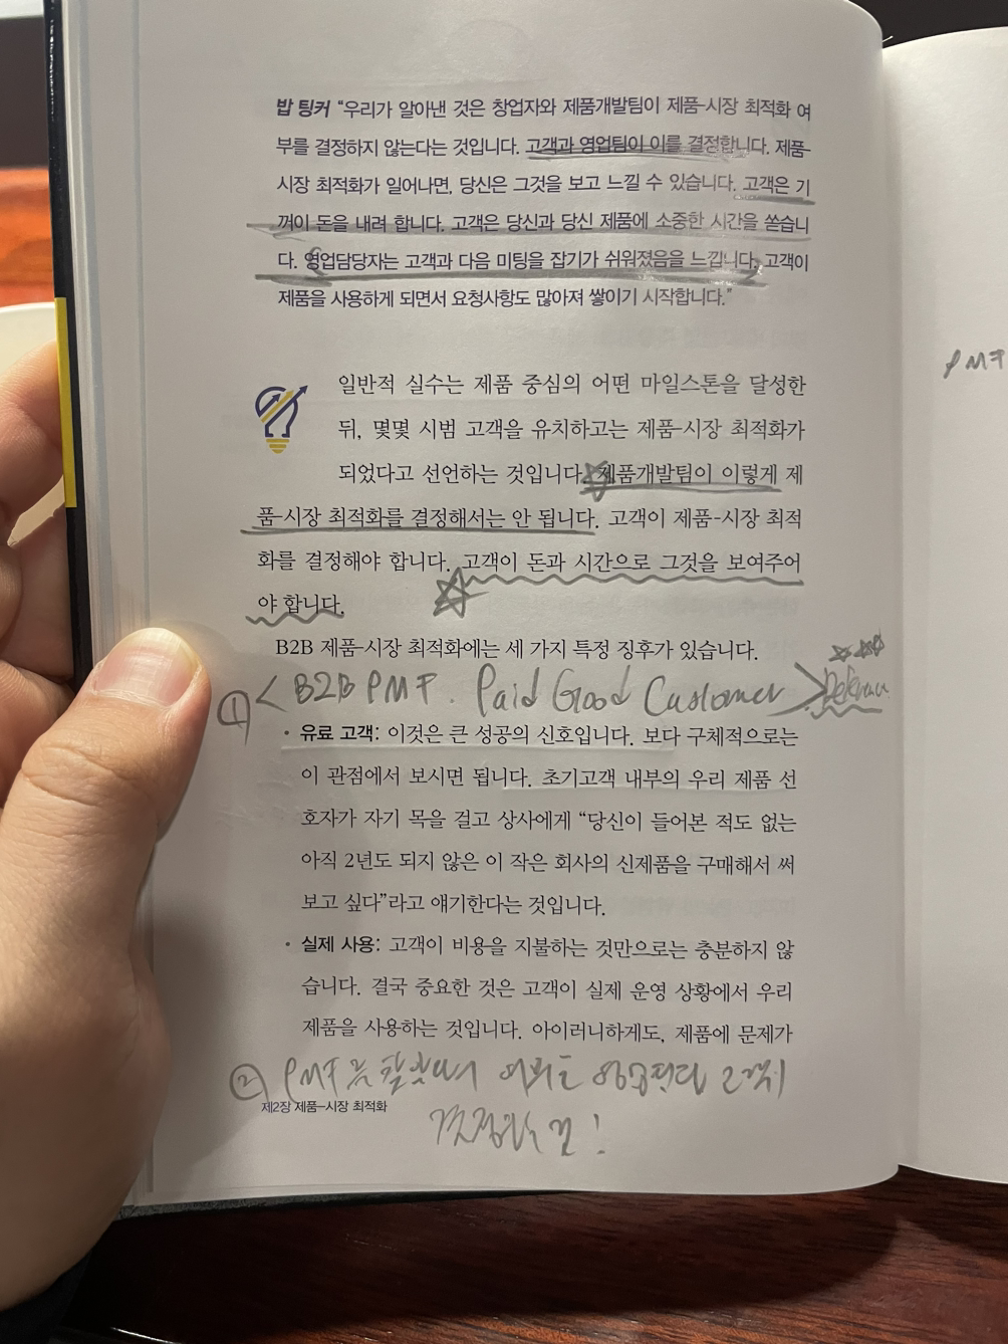 밥 팅커 “우리가 알아낸 것은 창업자와 제품개발팀이 제품-시장 최적화 여
부를 결정하지 않는다는 것입니다. 고객과 영업팀이 이를 결정합니다. 제품-
시장 최적화가 일어나면, 당신은 그것을 보고 느낄 수 있습니다. 고객은 기
꺼이 돈을 내려 합니다. 고객은 당신과 당신 제품에 소중한 시간을 쏟습니
다. 영업담당자는 고객과 다음 미팅을 잡기가 쉬워졌음을 느낍니다. 고객이
제품을 사용하게 되면서 요청사항도 많아져 쌓이기 시작합니다.”
일반적 실수는 제품 중심의 어떤 마일스톤을 달성한
뒤, 몇몇 시범 고객을 유치하고는 제품-시장 최적화가
되었다고 선언하는 것입니다. 제품개발팀이 이렇게 제
품-시장 최적화를 결정해서는 안 됩니다. 고객이 제품-시장 최적
화를 결정해야 합니다. 고객이 돈과 시간으로 그것을 보여주어
야 합니다.
B2B 제품-시장 최적화에는 세 가지 특정 징후가 있습니다.
① <B2B PMF. Paid Good Customer>
• 유료 고객: 이것은 큰 성공의 신호입니다. 보다 구체적으로는
이 관점에서 보시면 됩니다. 초기고객 내부의 우리 제품 선
호자가 자기 목을 걸고 상사에게 “당신이 들어본 적도 없는
아직 2년도 되지 않은 이 작은 회사의 신제품을 구매해서 써
보고 싶다”라고 얘기한다는 것입니다.
• 실제 사용: 고객이 비용을 지불하는 것만으로는 충분하지 않
습니다. 결국 중요한 것은 고객이 실제 운영 상황에서 우리
제품을 사용하는 것입니다. 아이러니하게도, 제품에 문제가
② PMF 여부는 고객이
제2장 제품-시장 최적화
PMF